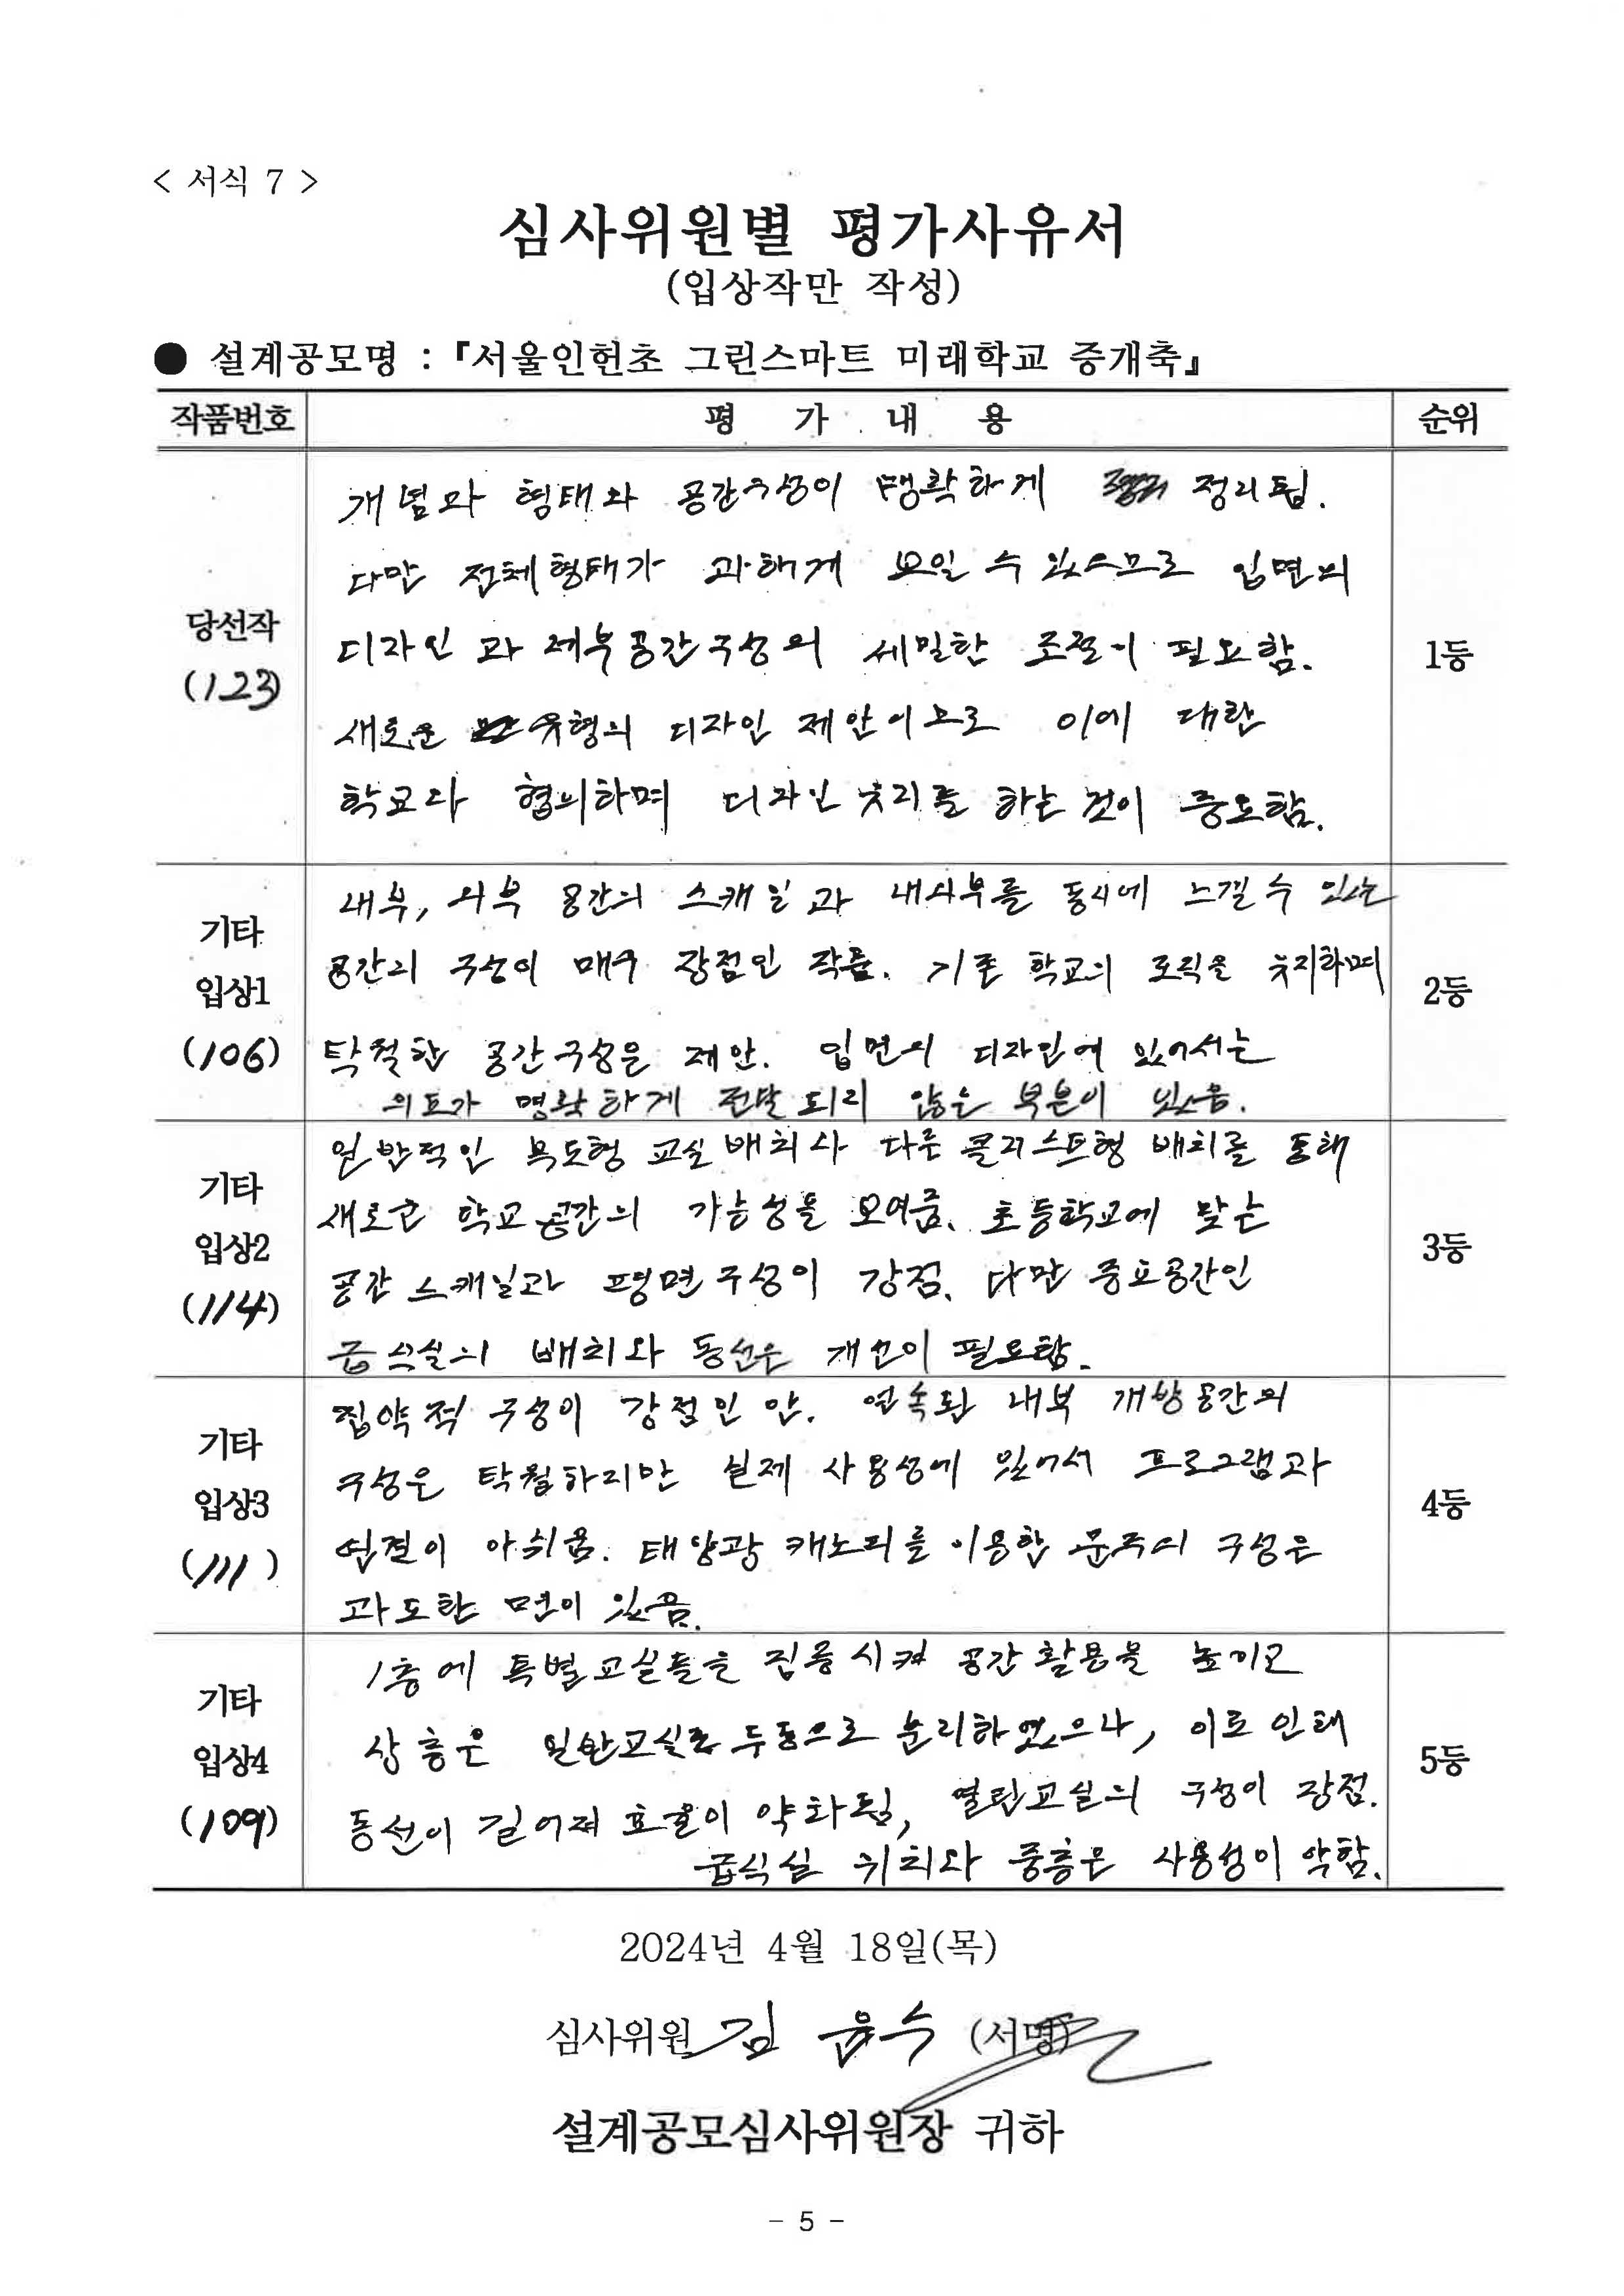 < 서식 7 >
심사위원별 평가사유서
(입상작만 작성)
● 설계공모명 : 『서울인헌초 그린스마트 미래학교 증개축』
작품번호 평 가 내 용 순위
당선작
(123)
개념과 형태와 공간구성이 명확하게 정리됨.
다만 전체형태가 과하게 보일 수 있으므로 입면의
디자인과 세부공간구성의 세밀한 조절이 필요함.
새로운 유형의 디자인 제안이므로 이에 대한
학교와 협의하며 디자인 유지를 하는 것이 중요함.
1등
기타
입상1
(106)
내부, 외부 공간의 스캐일과 내외부를 동시에 느낄 수 있는
공간의 구성이 매우 장점인 작품. 기존 학교의 로직을 유지하며
적절한 공간구성은 제안. 입면의 디자인에 있어서는
의도가 명확하게 전달되지 않은 부분이 있음.
2등
기타
입상2
(114)
일반적인 복도형 교실배치와 다른 클러스트형 배치를 통해
새로운 학교공간의 가능성을 보여줌. 초등학교에 맞는
공간 스캐일과 평면구성이 강점. 다만 중요공간인
급식실의 배치와 동선은 개선이 필요함.
3등
기타
입상3
(111)
집약적 구성이 강점인 안. 연속된 내부 개방공간의
구성은 탁월하지만 실제 사용성에 있어서 프로그램과
연결이 아쉬움. 태양광 캐노피를 이용한 문주의 구성은
과도한 면이 있음.
4등
기타
입상4
(109)
1층에 특별교실들을 집중시켜 공간활용을 높이고
상층은 일반교실로 두동으로 분리하였으나, 이로 인해
동선이 길어져 효율이 약화됨, 열린교실의 구성이 장점.
급식실 위치와 중층은 사용성이 약함.
5등
2024년 4월 18일(목)
심사위원 김 윤수 (서명)
설계공모심사위원장 귀하
- 5 -